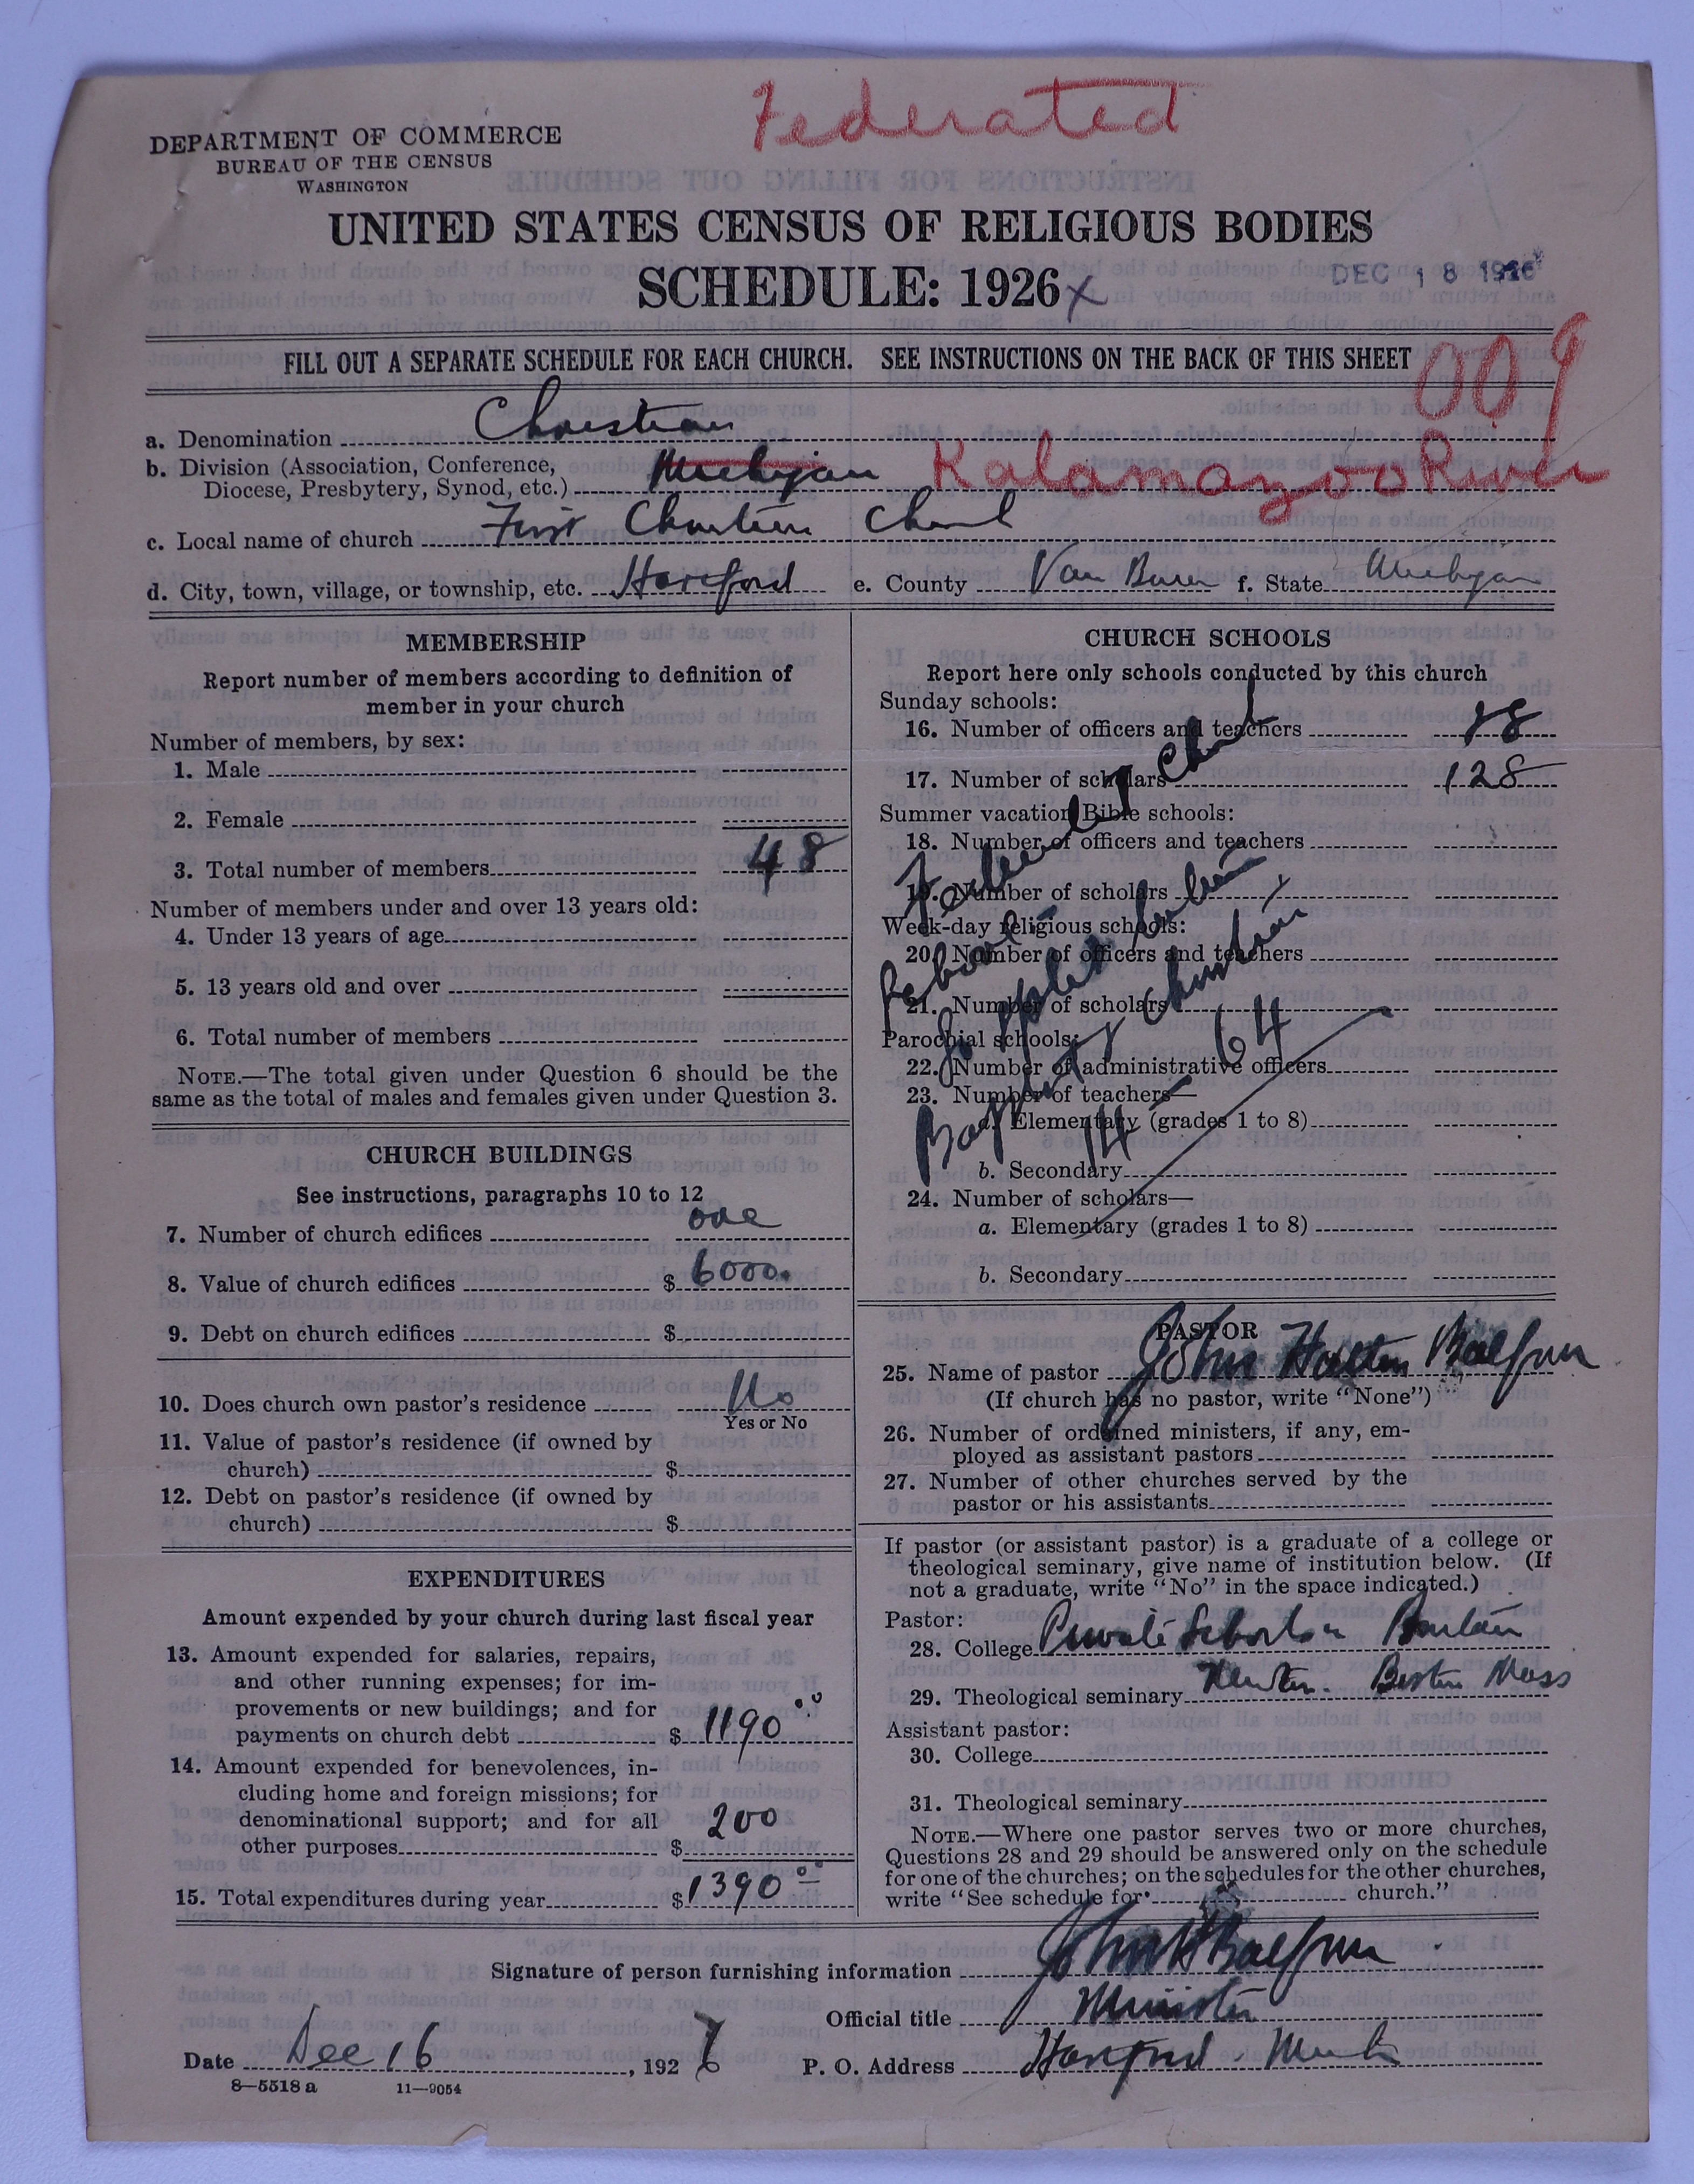 Federated
DEPARTMENT OF COMMERCE
BUREAU OF THE CENSUS
WASHINGTON
UNITED STATES CENSUS OF RELIGIOUS BODIES
SCHEDULE: 1926 x
DEC 18 1926
FILL OUT A SEPARATE SCHEDULE FOR EACH CHURCH. SEE INSTRUCTIONS ON THE BACK OF THIS SHEET
009
a. Denomination Christian
b. Division (Association, Conference,
Diocese, Presbytery, Synod, etc.) Michigan Kalamazoo River
c. Local name of church First Christian Church
d. City, town, village, or township, etc. Hartford e. County Van Buren f. State Michigan
MEMBERSHIP
Report number of members according to definition of
member in your church
Number of members, by sex:
1. Male
2. Female
3. Total number of members 48
Number of members under and over 13 years old:
4. Under 13 years of age
5. 13 years old and over
6. Total number of members
NOTE.—The total given under Question 6 should be the
same as the total of males and females given under Question 3.
CHURCH BUILDINGS
See instructions, paragraphs 10 to 12
7. Number of church edifices one
8. Value of church edifices $ 6000.
9. Debt on church edifices $
10. Does church own pastor's residence No
Yes or No
11. Value of pastor's residence (if owned by
church) $
12. Debt on pastor's residence (if owned by
church) $
EXPENDITURES
Amount expended by your church during last fiscal year
13. Amount expended for salaries, repairs,
and other running expenses; for im-
provements or new buildings; and for
payments on church debt $ 1190 00
14. Amount expended for benevolences, in-
cluding home and foreign missions; for
denominational support; and for all
other purposes $ 200
15. Total expenditures during year $ 1390 00
CHURCH SCHOOLS
Report here only schools conducted by this church
Sunday schools:
16. Number of officers and teachers
17. Number of scholars 128
Summer vacation Bible schools:
18. Number of officers and teachers
19. Number of scholars
Week-day religious schools:
20. Number of officers and teachers
21. Number of scholars
Parochial schools:
22. Number of administrative officers
23. Number of teachers—
a. Elementary (grades 1 to 8)
b. Secondary
24. Number of scholars—
a. Elementary (grades 1 to 8)
b. Secondary
Federated Church
School
Baptist & Christian
14 64
PASTOR
25. Name of pastor John Balfour
(If church has no pastor, write "None")
26. Number of ordained ministers, if any, em-
ployed as assistant pastors
27. Number of other churches served by the
pastor or his assistants
If pastor (or assistant pastor) is a graduate of a college or
theological seminary, give name of institution below. (If
not a graduate, write "No" in the space indicated.)
Pastor:
28. College Private
29. Theological seminary Newton. Boston Mass
Assistant pastor:
30. College
31. Theological seminary
NOTE.—Where one pastor serves two or more churches,
Questions 28 and 29 should be answered only on the schedule
for one of the churches; on the schedules for the other churches,
write "See schedule for church."
Signature of person furnishing information John H Balfour
Official title Minister
Date Dec 16, 1926 P. O. Address Hartford. Mich
8—5518 a 11—9054